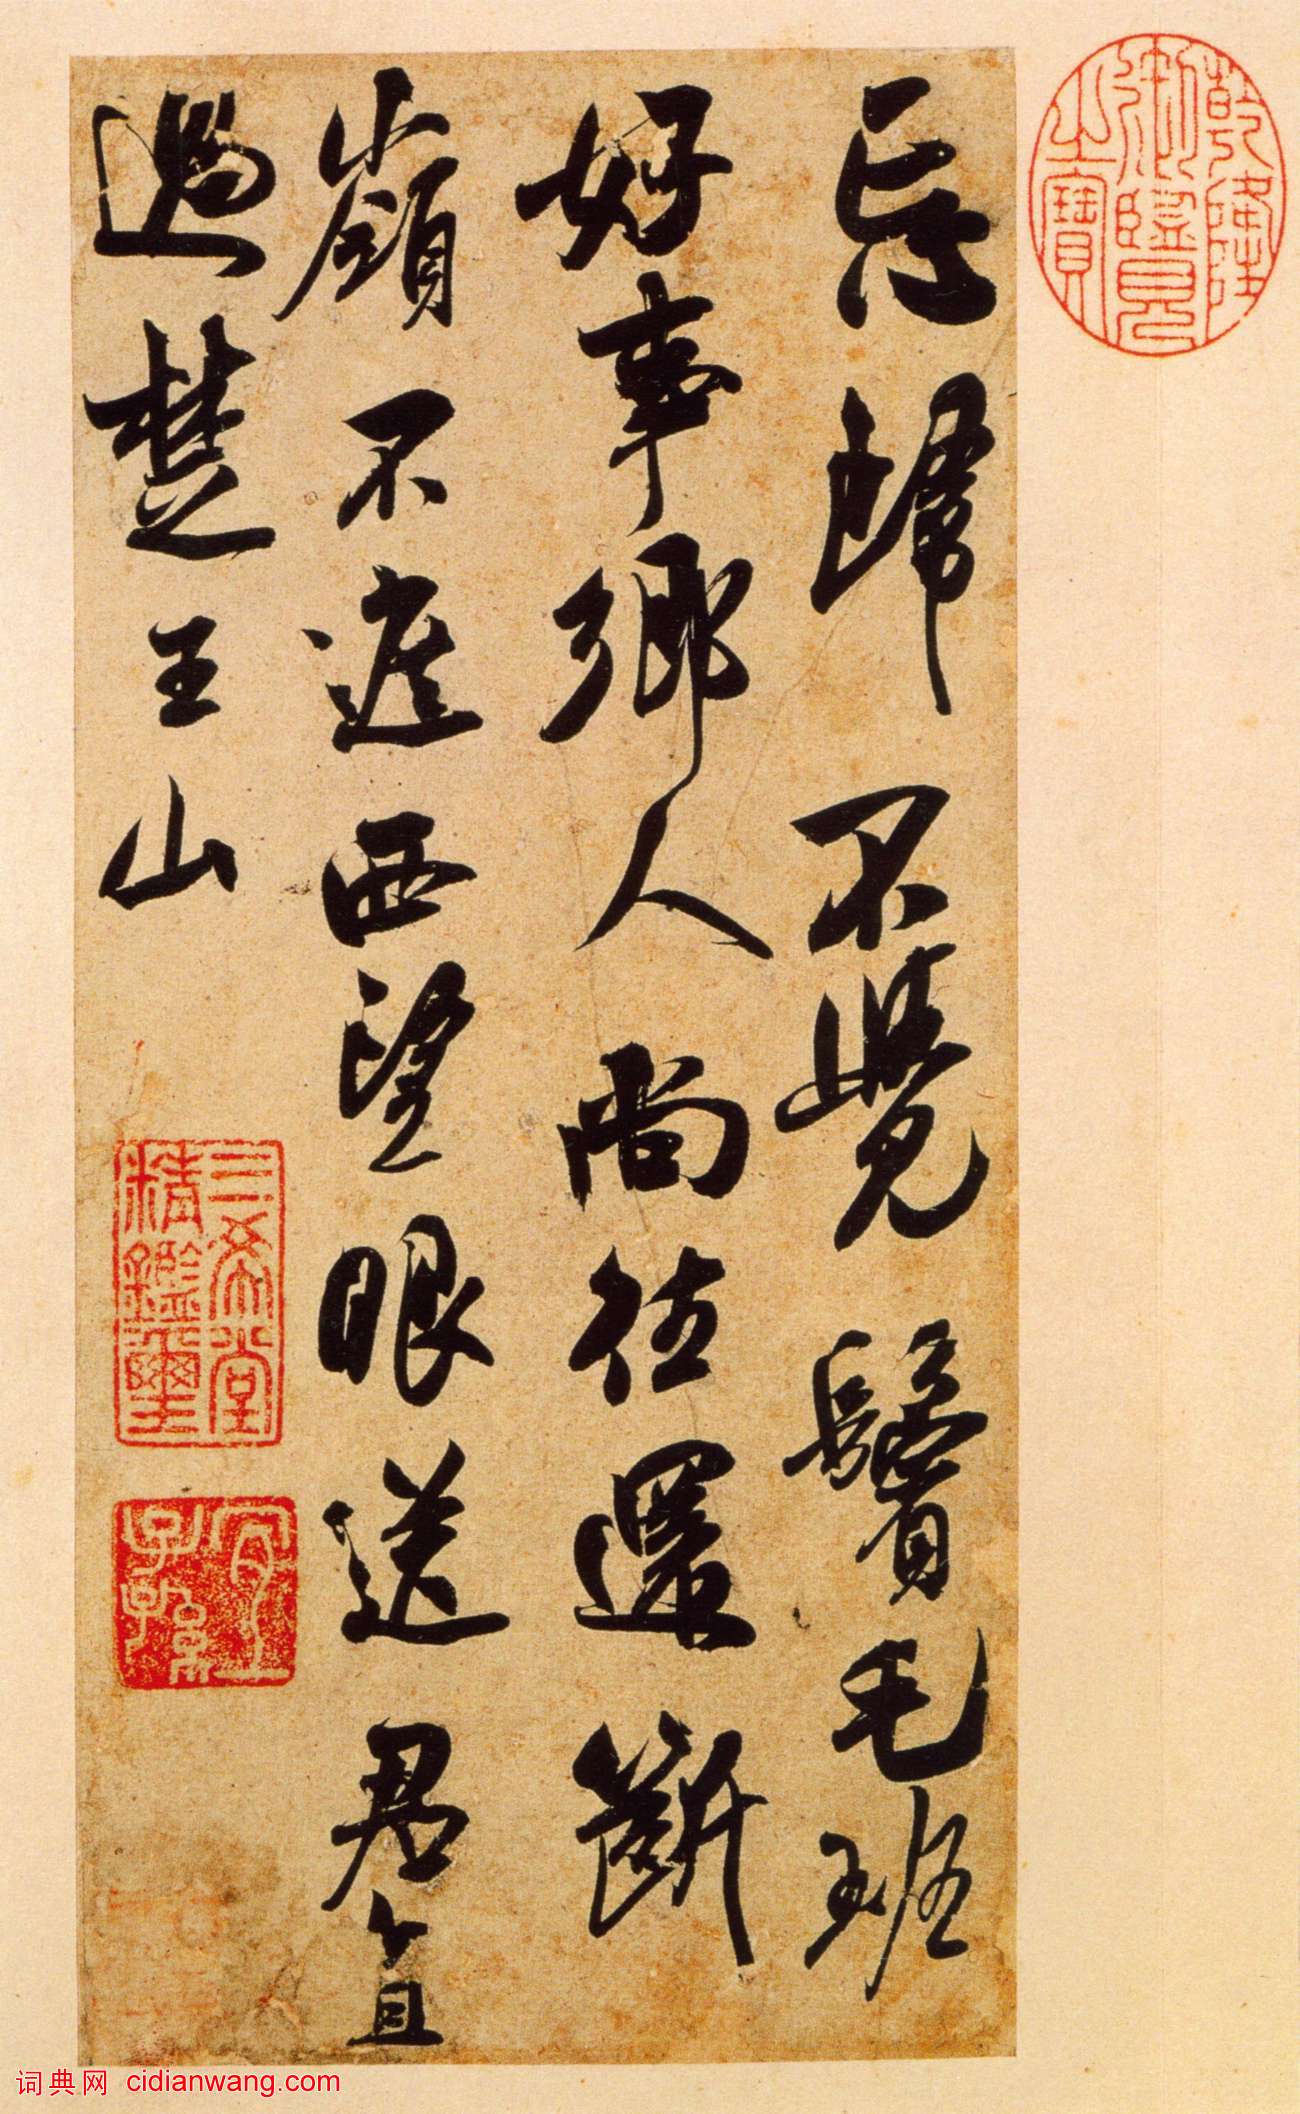 忘歸不覺鬢毛班
好事鄉人尚往還斷
嶺不遮西望眼送君直
過楚王山
乾隆御覽之寶
三希堂精鑑璽
宜子孫
词典网 cidianwang.com